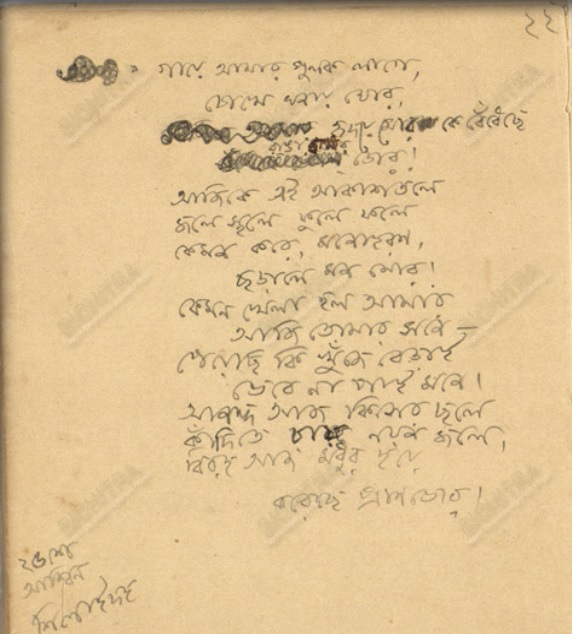 ২২
গায়ে আমার পুলক লাগে,
চোখে ঘনায় ঘোর,
হৃদয়ে মোর কে বেঁধেছে
রাঙা রাখীর ডোর!
আজিকে এই আকাশতলে
জলে স্থলে ফুলে ফলে
কেমন করে, মনোহরণ,
ছড়ালে মন মোর!
কেমন খেলা হল আমার
আজি তোমার সনে –
পেয়েছি কি খুঁজে বেড়াই
ভেবে না পাই মনে।
আনন্দ আজ কিসের ছলে
কাঁদিতে চায় নয়ন জলে,
বিরহ আজ মধুর হয়ে
করেছে প্রাণ ভোর!
২৫শে
আশ্বিন
শিলাইদহ